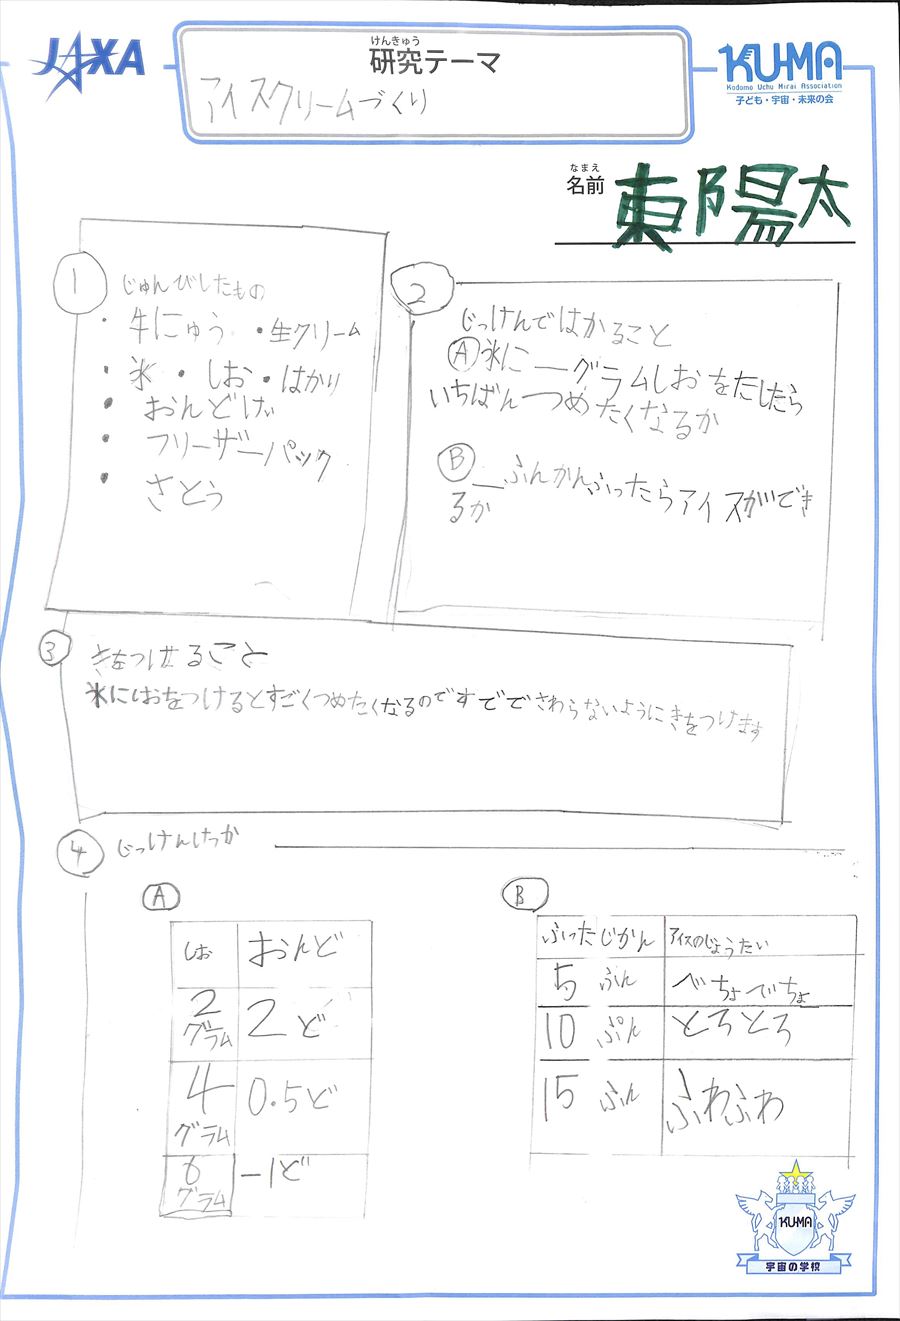 JAXA
けんきゅう
研究テーマ
アイスクリームづくり
KU-MA
Kodomo Uchu Mirai Association
子ども・宇宙・未来の会
なまえ
名前
東陽太
1 じゅんびしたもの
・牛にゅう ・生クリーム
・氷 ・しお ・はかり
・おんどけい
・フリーザーパック
・さとう
2
じっけんではかること
A 氷に__グラムしおをたしたら
いちばんつめたくなるか
B __ふんかんふったらアイスができ
るか
3
きをつけること
氷にしおをつけるとすごくつめたくなるのですでできわらないようにきをつけます
4 じっけんけっか
A
しお おんど
2グラム 2ど
4グラム 0.5ど
6グラム -1ど
B
ふったじかん アイスのじょうたい
5ふん べちょべちょ
10ぷん とろとろ
15ふん ふわふわ
KU-MA
宇宙の学校